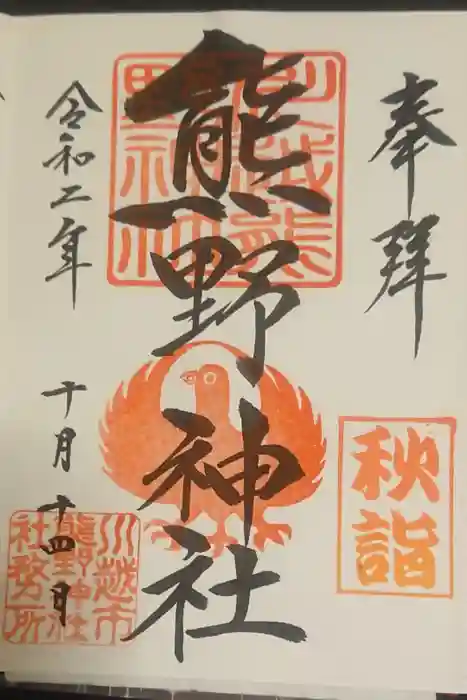 奉拝
秋詣
熊野神社
川越熊
野神社
令和二年
十月十四日
川越市
熊野神社
社務所